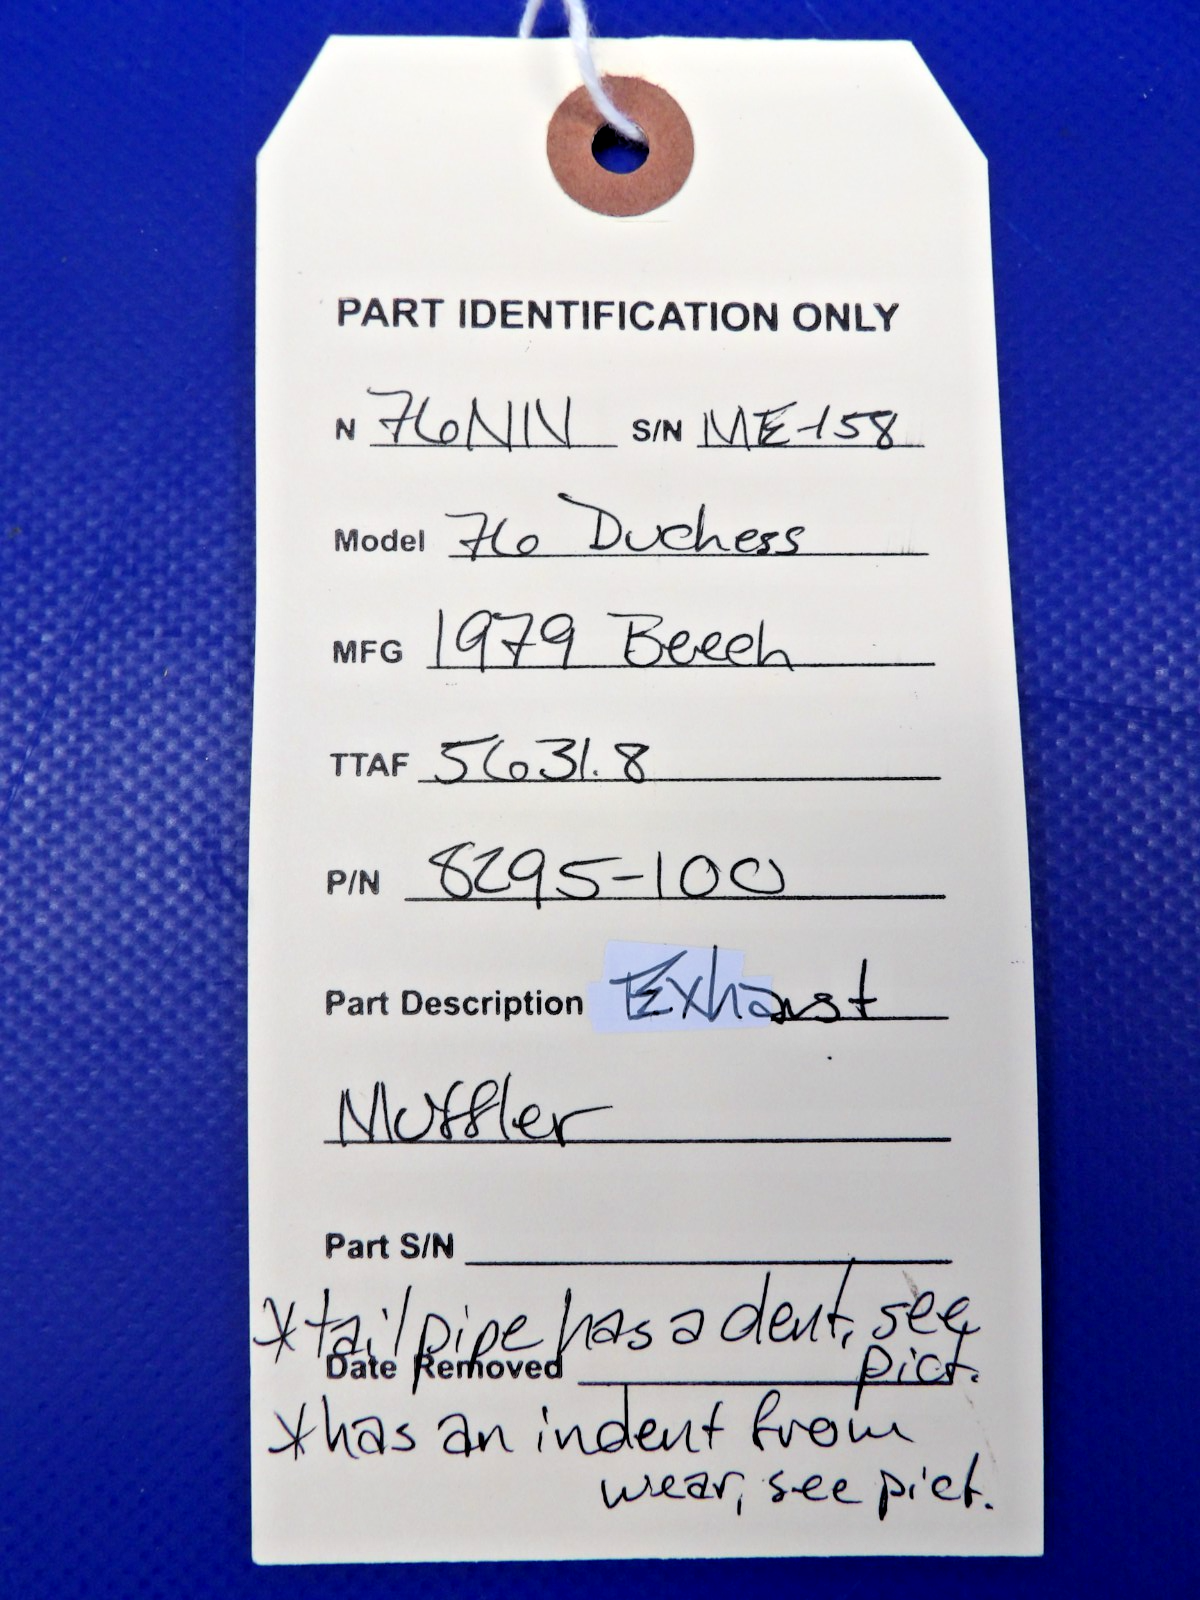 PART IDENTIFICATION ONLY
N 76NW S/N ME-158
Model 76 Duchess
MFG 1979 Beech
TTAF 5631.8
P/N 8295-100
Part Description Exhaust
Muffler
Part S/N
*tailpipe has a dent, see
pict.
Date Removed
*has an indent from
wear, see pict.